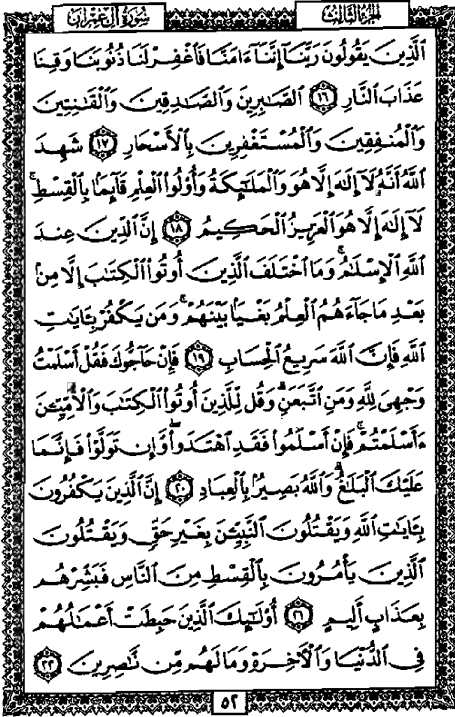 سورة آل عمران
الجزء الثالث
ٱلَّذِينَ يَقُولُونَ رَبَّنَآ إِنَّنَآ ءَامَنَّا فَٱغْفِرْ لَنَا ذُنُوبَنَا وَقِنَا
عَذَابَ ٱلنَّارِ ١٦ ٱلصَّٰبِرِينَ وَٱلصَّٰدِقِينَ وَٱلْقَٰنِتِينَ
وَٱلْمُنفِقِينَ وَٱلْمُسْتَغْفِرِينَ بِٱلْأَسْحَارِ ١٧ شَهِدَ
ٱللَّهُ أَنَّهُۥ لَآ إِلَٰهَ إِلَّا هُوَ وَٱلْمَلَٰٓئِكَةُ وَأُو۟لُوا۟ ٱلْعِلْمِ قَآئِمًۢا بِٱلْقِسْطِ ۚ
لَآ إِلَٰهَ إِلَّا هُوَ ٱلْعَزِيزُ ٱلْحَكِيمُ ١٨ إِنَّ ٱلدِّينَ عِندَ
ٱللَّهِ ٱلْإِسْلَٰمُ ۗ وَمَا ٱخْتَلَفَ ٱلَّذِينَ أُوتُوا۟ ٱلْكِتَٰبَ إِلَّا مِنۢ
بَعْدِ مَا جَآءَهُمُ ٱلْعِلْمُ بَغْيًۢا بَيْنَهُمْ ۗ وَمَن يَكْفُرْ بِـَٔايَٰتِ
ٱللَّهِ فَإِنَّ ٱللَّهَ سَرِيعُ ٱلْحِسَابِ ١٩ فَإِنْ حَآجُّوكَ فَقُلْ أَسْلَمْتُ
وَجْهِىَ لِلَّهِ وَمَنِ ٱتَّبَعَنِ ۗ وَقُل لِّلَّذِينَ أُوتُوا۟ ٱلْكِتَٰبَ وَٱلْأُمِّيِّـۧنَ
ءَأَسْلَمْتُمْ ۚ فَإِنْ أَسْلَمُوا۟ فَقَدِ ٱهْتَدَوا۟ ۖ وَّإِن تَوَلَّوْا۟ فَإِنَّمَا
عَلَيْكَ ٱلْبَلَٰغُ ۗ وَٱللَّهُ بَصِيرٌۢ بِٱلْعِبَادِ ٢٠ إِنَّ ٱلَّذِينَ يَكْفُرُونَ
بِـَٔايَٰتِ ٱللَّهِ وَيَقْتُلُونَ ٱلنَّبِيِّـۧنَ بِغَيْرِ حَقٍّ وَيَقْتُلُونَ
ٱلَّذِينَ يَأْمُرُونَ بِٱلْقِسْطِ مِنَ ٱلنَّاسِ فَبَشِّرْهُم
بِعَذَابٍ أَلِيمٍ ٢١ أُو۟لَٰٓئِكَ ٱلَّذِينَ حَبِطَتْ أَعْمَٰلُهُمْ
فِى ٱلدُّنْيَا وَٱلْءَاخِرَةِ وَمَا لَهُم مِّن نَّٰصِرِينَ ٢٢
٥٢